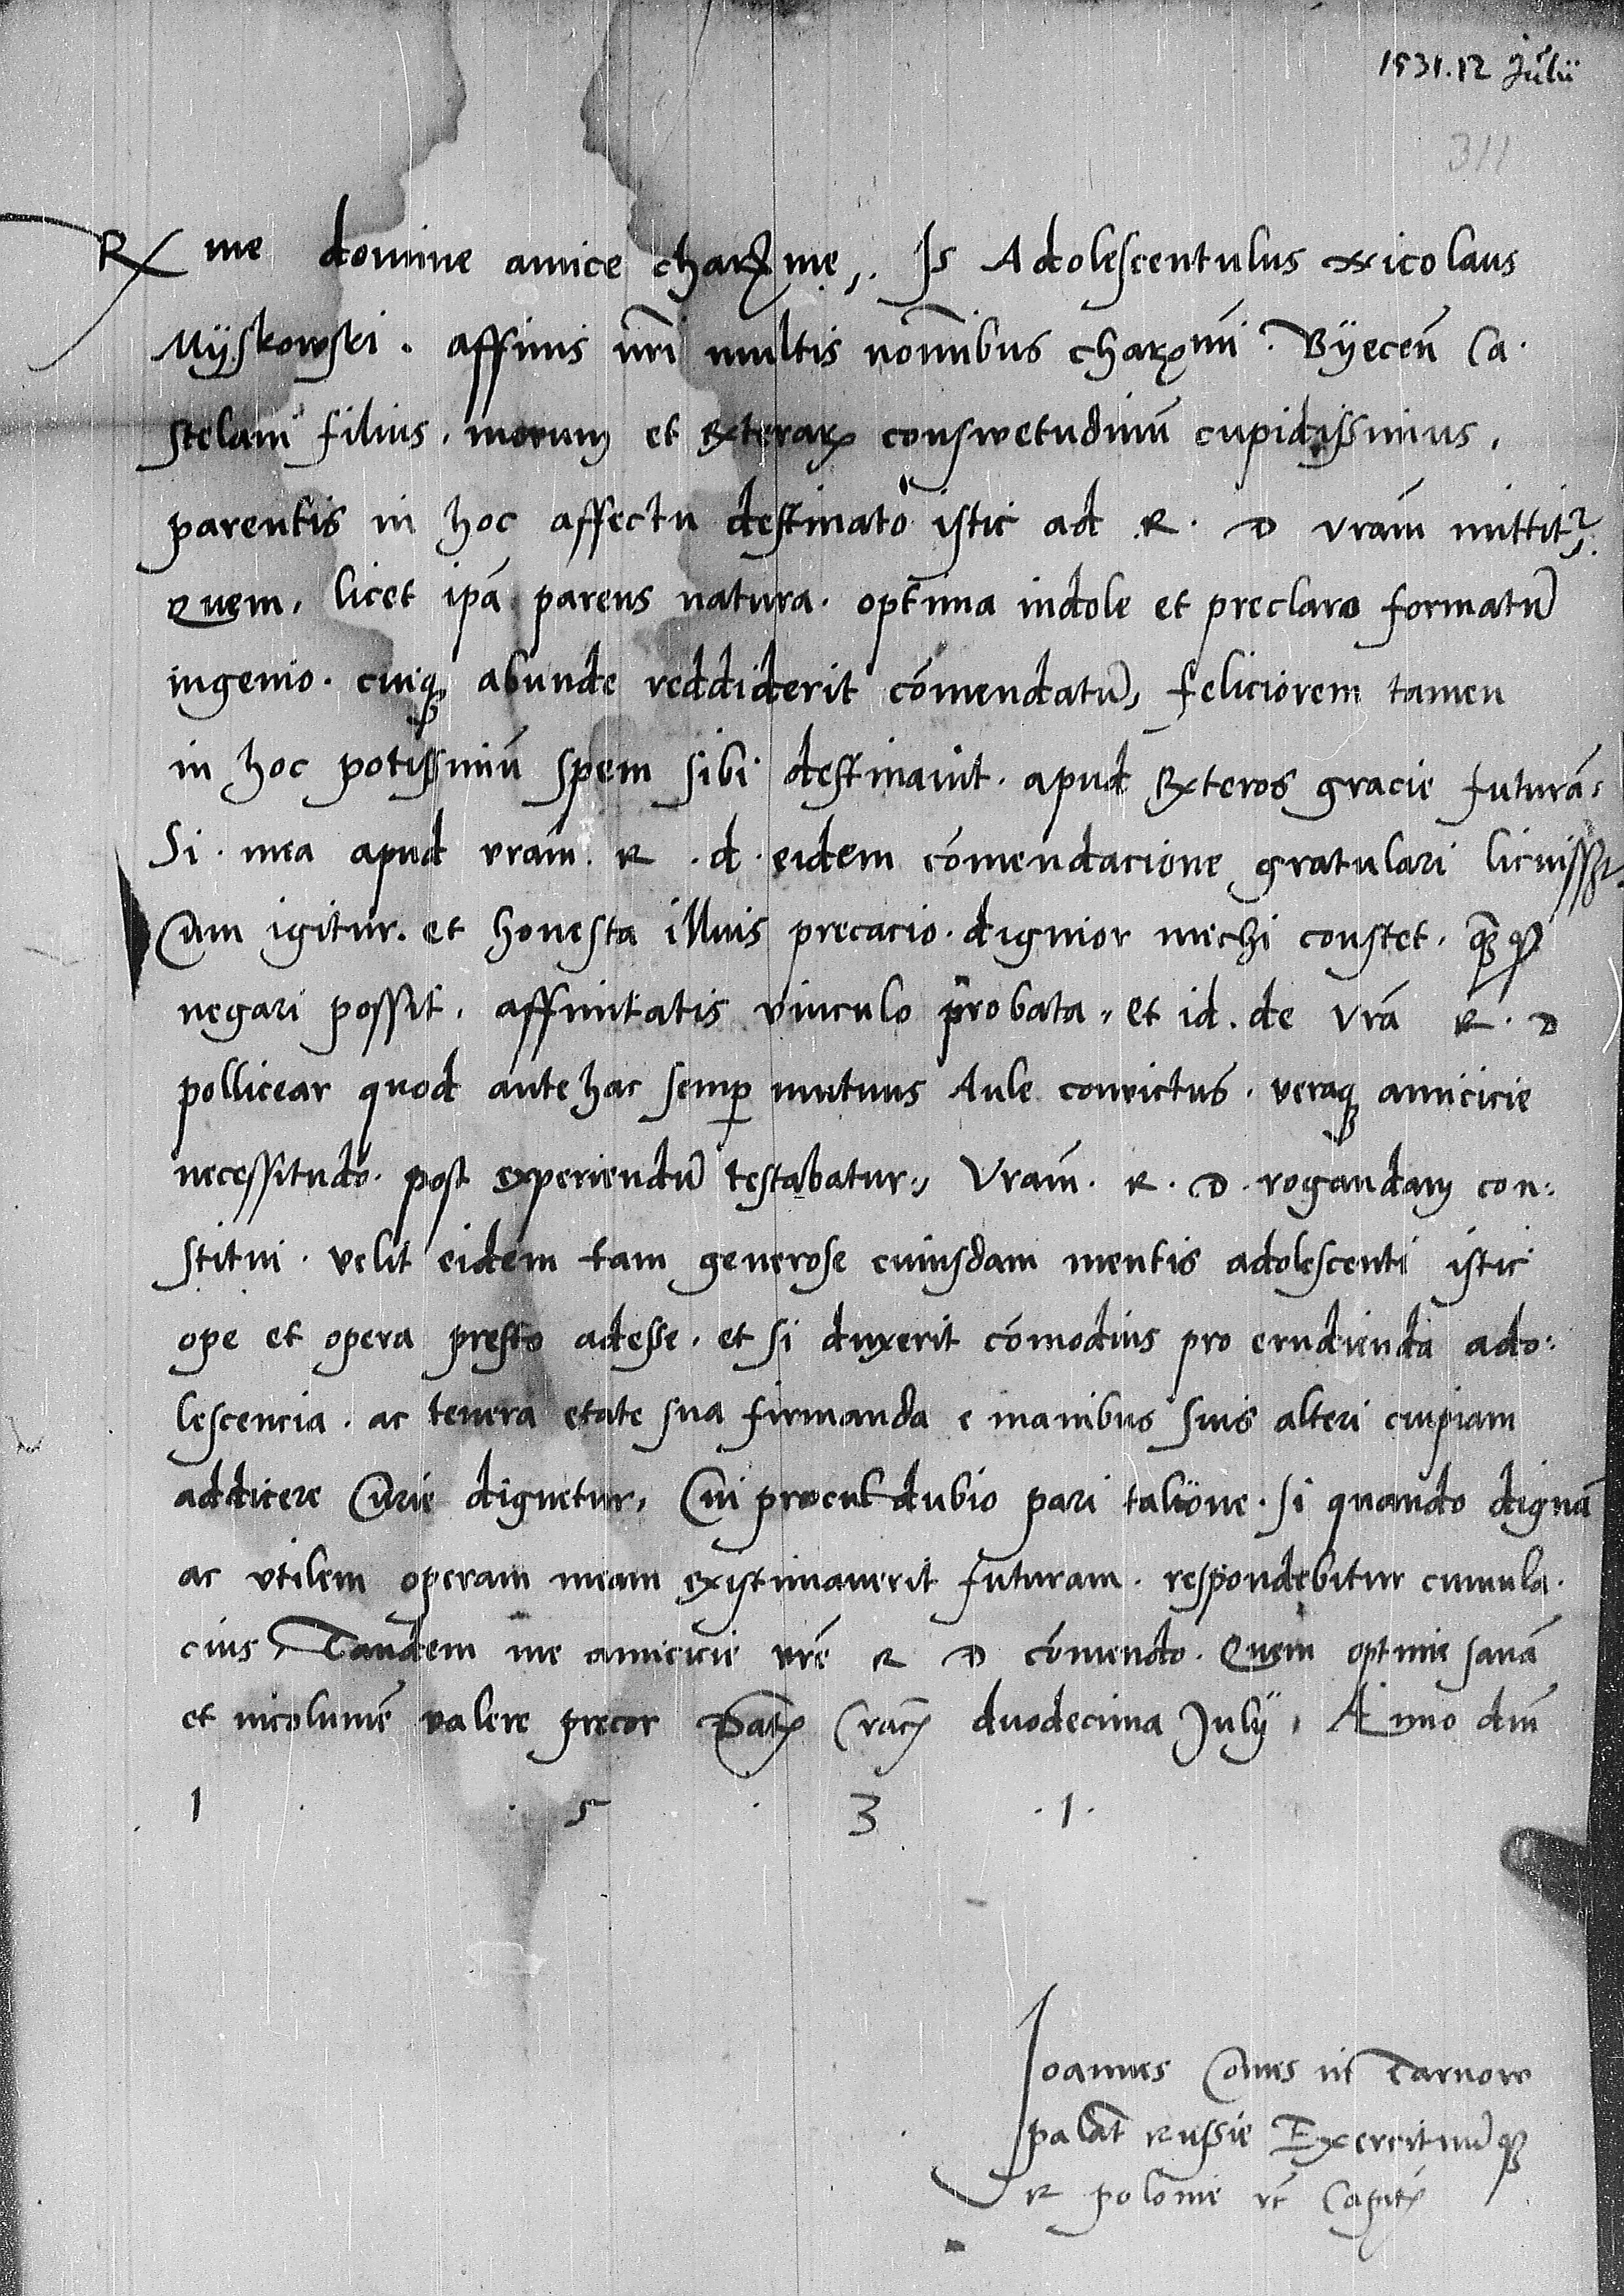 1531. 12 Julii
311
Rx me domine amice charxme,. Is Adolescentulus Nicolaus
Myskowski. affinis nrī multis nomībus charxmi. Byecen̄ Ca.
stelani filius, morum et Exterarx conswetudinū cupidissimus,
parentis in hoc affectu destinato istic ad R. D vrām mittit2.
Quem, licet ipā parens natura. optima indole et preclaro formatū
ingenio. cuiqȝ abunde reddiderit cōmendatū, feliciorem tamen
in hoc potissimū spem sibi destinavit. apud Exteros gracie futurā,
Si. mea apud vrām. R. d. eidem cōmendacione gratulari licuisset.
Cum igitur. et honesta illius precacio. dignior mechi constet.
negari possit, affinitatis vinculo probata, et id. de vrā R. D
pollicear quod ante hac semp mutuus Aule convictus. veraqȝ amicicie
necessitudo. post experiendū testabatur, Vrām. R. D. rogandam con:
stitui. velit eidem tam generose cuiusdam mentis adolescenti istic
ope et opera presto adesse. et si duxerit cōmodius pro erudienda ado:
lescencia. ac tenera etate sua firmanda e manibus suis alteri cuipiam
addicere Curie dignetur, Cui procul dubio pari talione. si quando dignā
ac vtilem operam meam existimaverit futuram. respondebitur cumula.
cius, Tandem me amicicie vrē R D cōmendo. Quem optime sanā
et incolumē valere precor Datx Cracx duodecima Julÿ, Anno dnī
1 . 5 . 3 . 1.
Joannes Comes in Tarnow
palat Russie Exercituūqȝ
R polonie et Capitx